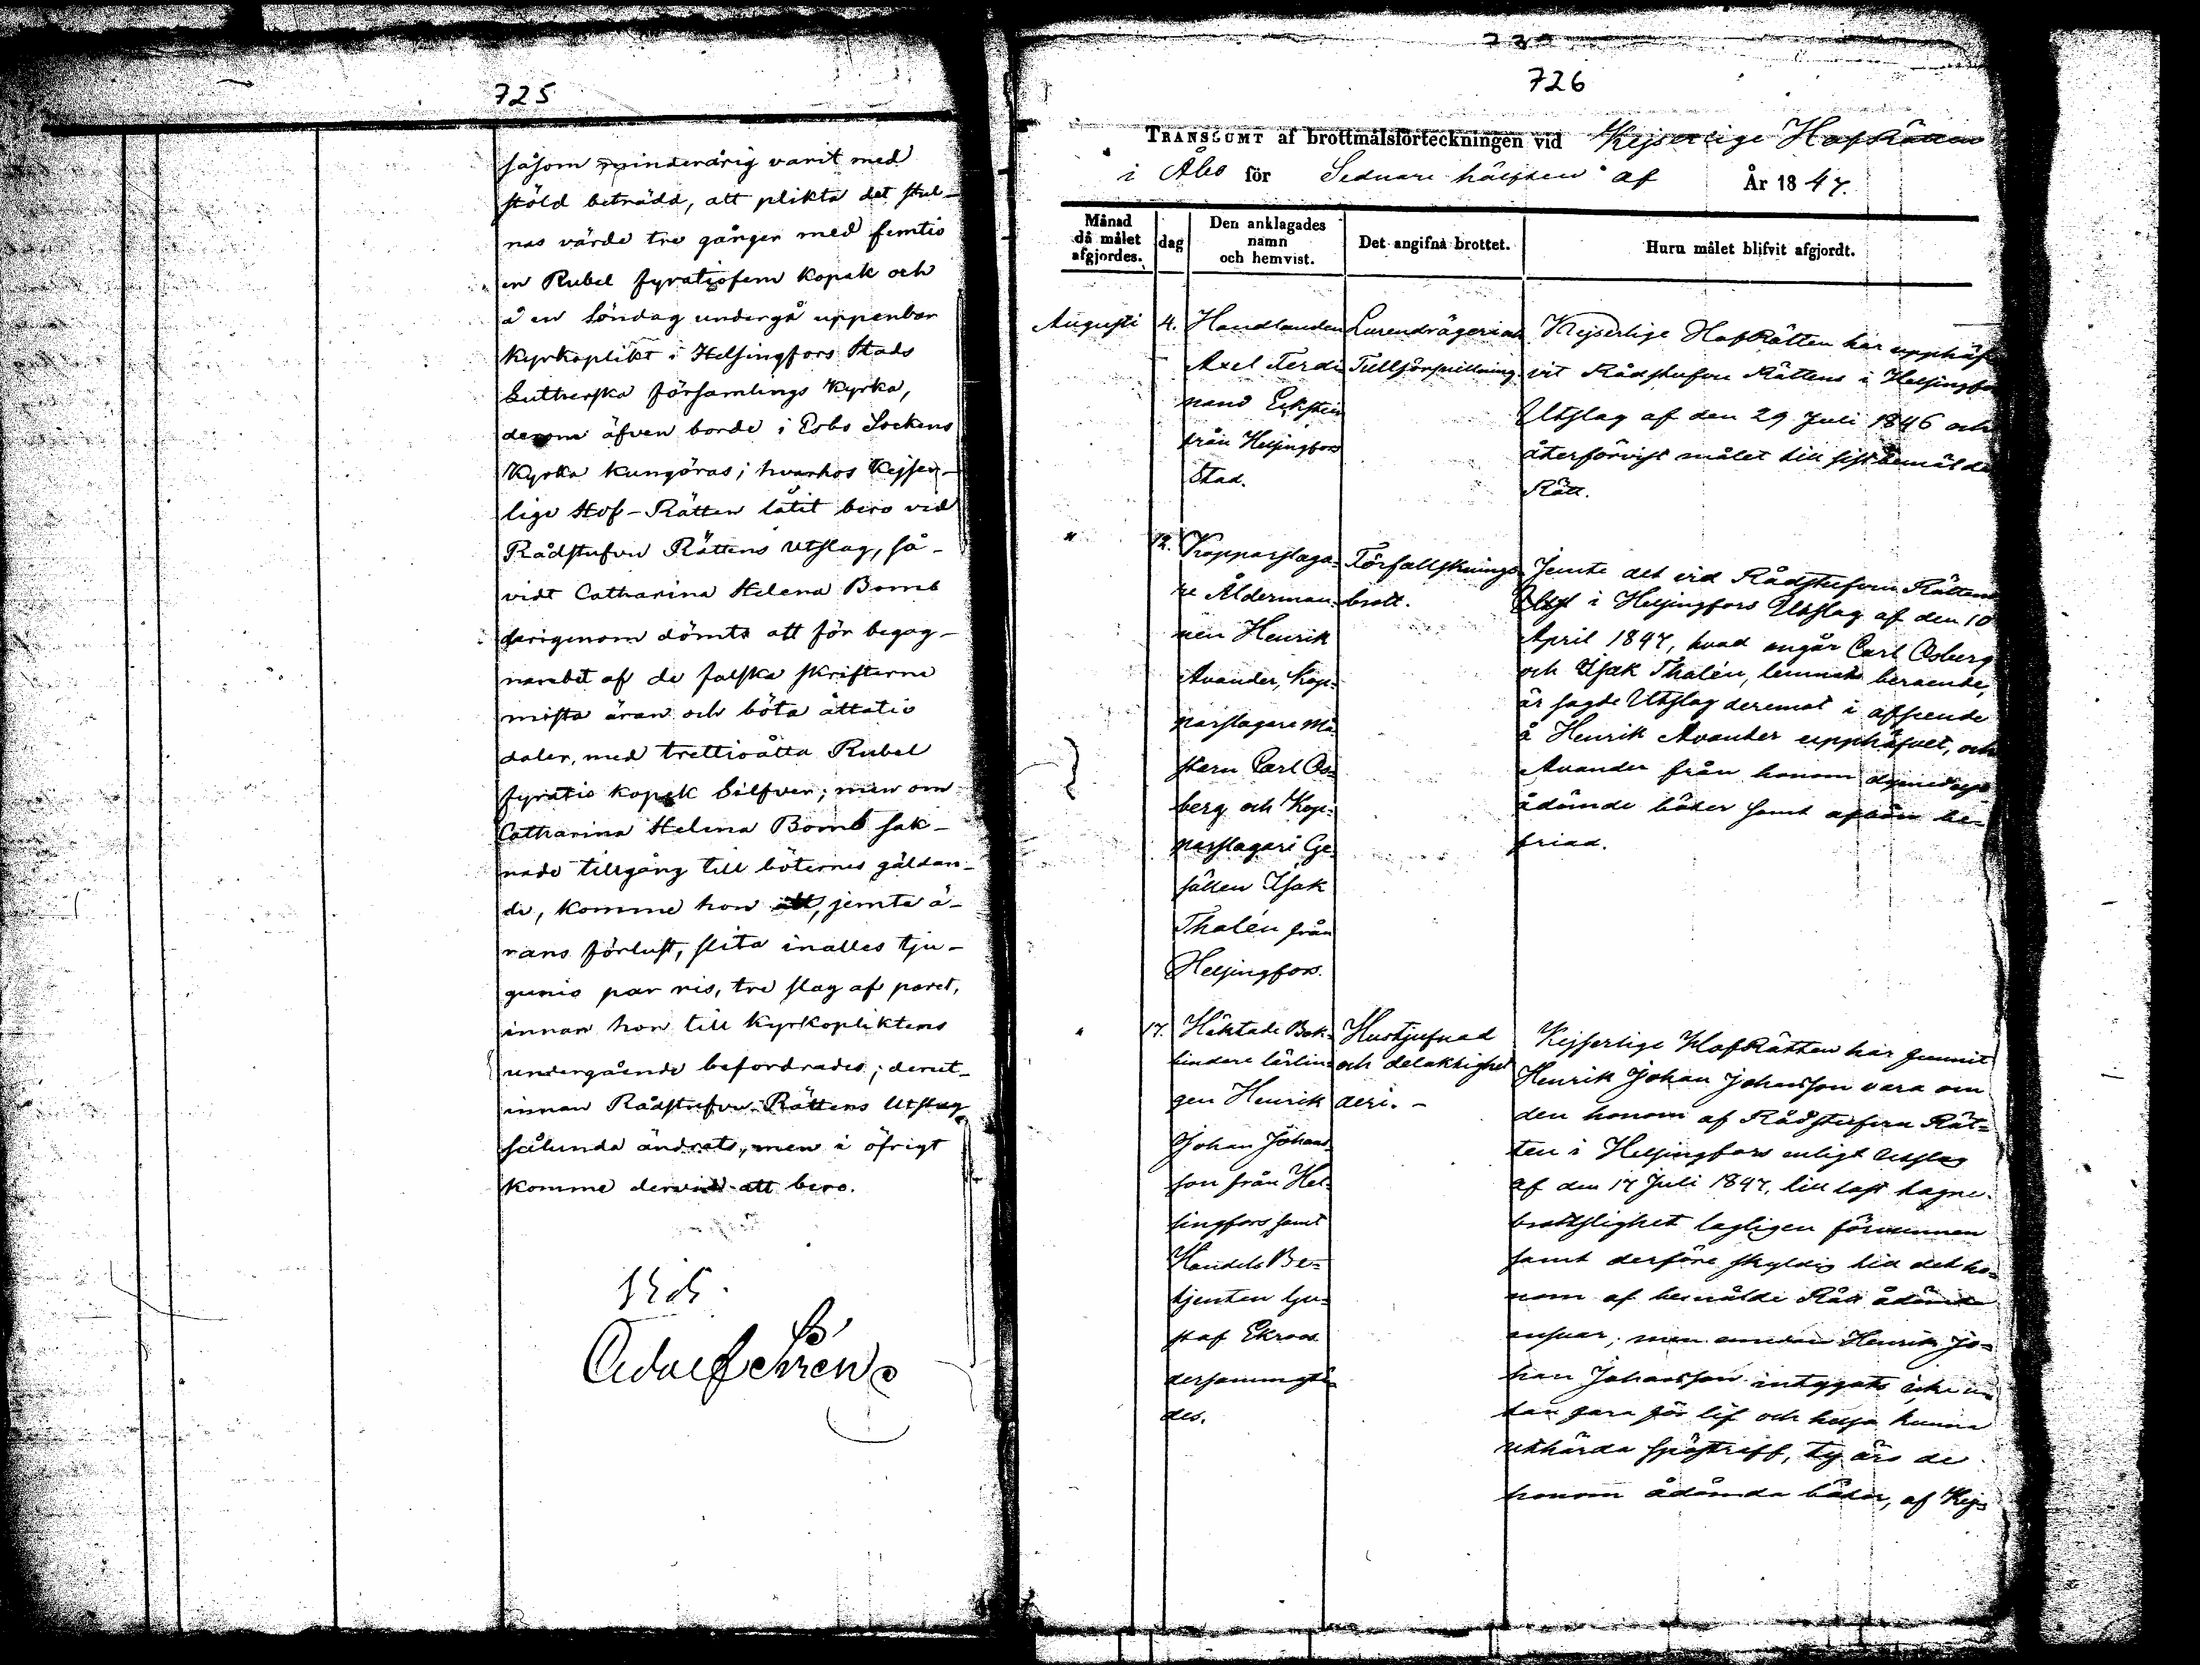 725
såsom minderårig varit med
stöld beträdd, att plikta det stul-
nas värde tre gånger med femtio
en Rubel fyratiofem kopek och
å en Söndag undergå uppenbar
kyrkoplikt i Helsingfors Stads
Lutherska församlings kyrka,
derom äfven borde i Esbo Sockens
Kyrka kungöras; hvarhos Kejser-
lige Hof-Rätten låtit bero vid
Rådstufvu Rättens Utslag, så-
vidt Catharina Helena Bomb
derigenom dömts att för begag-
nandet af de falska skrifterna
mista äran och böta åttatio
daler, med trettioåtta Rubel
fyratio kopek Silfver; men om
Catharina Helena Bomb sak-
nade tillgång till böternes gäldan-
de, komme hon att, jemte ä-
rans förlust, slita inalles tju-
gunio par ris, tre slag af paret,
innan hon till kyrkopliktens
undergående befordrades; derut-
innan Rådstufvu-Rättens Utslag
sålunda ändrats, men i öfrigt
komme dervid att bero.
726
TRANSSUMT af brottmålsförteckningen vid Kejserlige HofRätten
i Åbo för Sednare hälften af År 1847.
Månad då målet afgjordes.
dag
Den anklagades namn och hemvist.
Det angifna brottet.
Huru målet blifvit afgjordt.
Augusti 4.
Handlanden
Axel Ferdi
nand Eckstein
från Helsingfors
Stad.
Lurendrägeri och
Tullförsnillning.
Kejserlige HofRätten har upphäf-
vit Rådstufvu Rättens i Helsingfors
Utslag af den 29 Juli 1846 och
återförvist målet till sistbemälde
Rätt.
" 12.
Kopparslaga-
re Ålderman-
nen Henrik
Avander, Kop-
parslagare Mä-
staren Carl Os-
berg och Kop-
parslagare Ge-
sällen Isak
Thalén från
Helsingfors.
Förfalsknings-
brott.
Jemte det vid Rådstufvu Rättens
i Helsingfors Utslag af den 10
April 1847, hvad angår Carl Osberg
och Isak Thalén, lemnats beroende,
är sagde Utslag deremot i afseende
å Henrik Avander upphäfvet, och
Avander från honom
ådömde böter samt afbön be-
friad.
" 17.
Häktade Bok-
bindare lärlin-
gen Henrik
Johan Johans-
son från Hel-
singfors samt
Handels Be-
tjenten Gu-
staf Ekroos
dersammastä-
des.
Hustjufnad
och delaktighet
deri. -
Kejserlige HofRätten har funnit
Henrik Johan Johansson vara om
den honom af Rådstufvu Rät-
ten i Helsingfors enligt Utslag
af den 17 Juli 1847, till last lagne
brottslighet lagligen förvunnen
samt derföre skyldig till det ho-
nom af bemälde Rätt ådömde
ansvar; men emedan Henrik Jo-
han Johansson intygats icke u-
tan fara för lif och helsa kunna
uthärda spöstraff, ty äro de
honom ådömda böter, af Kej-